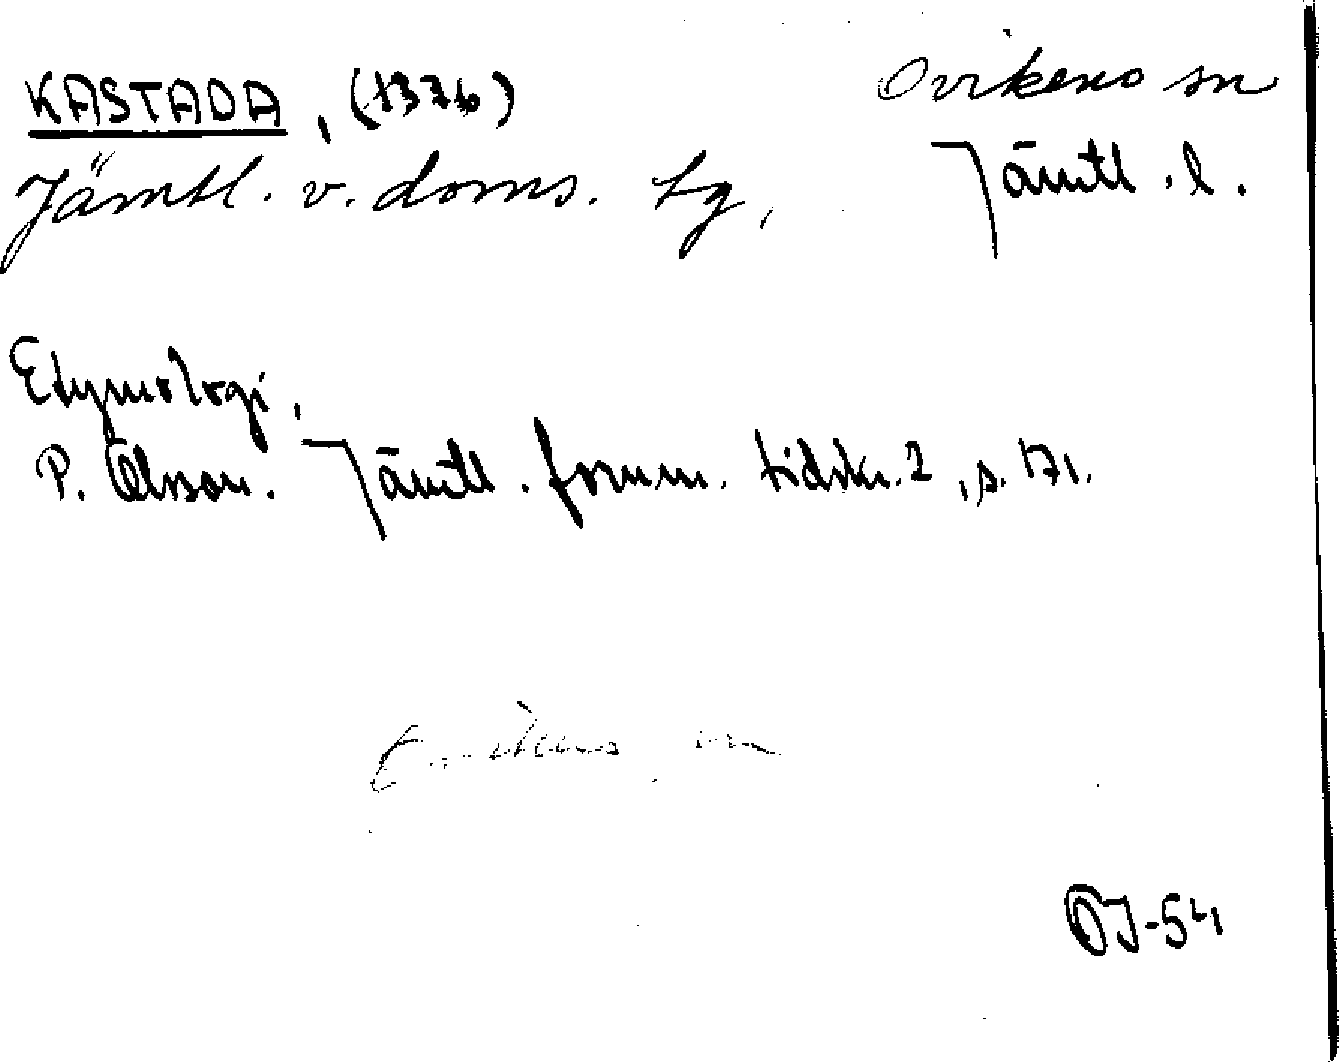 KASTADA, (1376)
Ovikens sn
Jämtl. v. doms. tg,
Jämtl. l.
Etymologi.
P. Olsson. Jämtl. fornm. tidskr. 2, s. 171.
sn
OJ-54